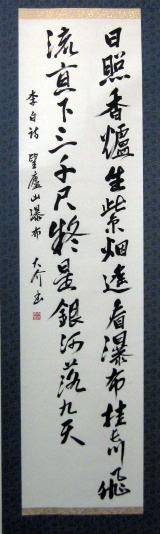 日照香爐生紫烟遙看瀑布挂前川飛
流直下三千尺疑是銀河落九天
李白詩 望廬山瀑布 大介書